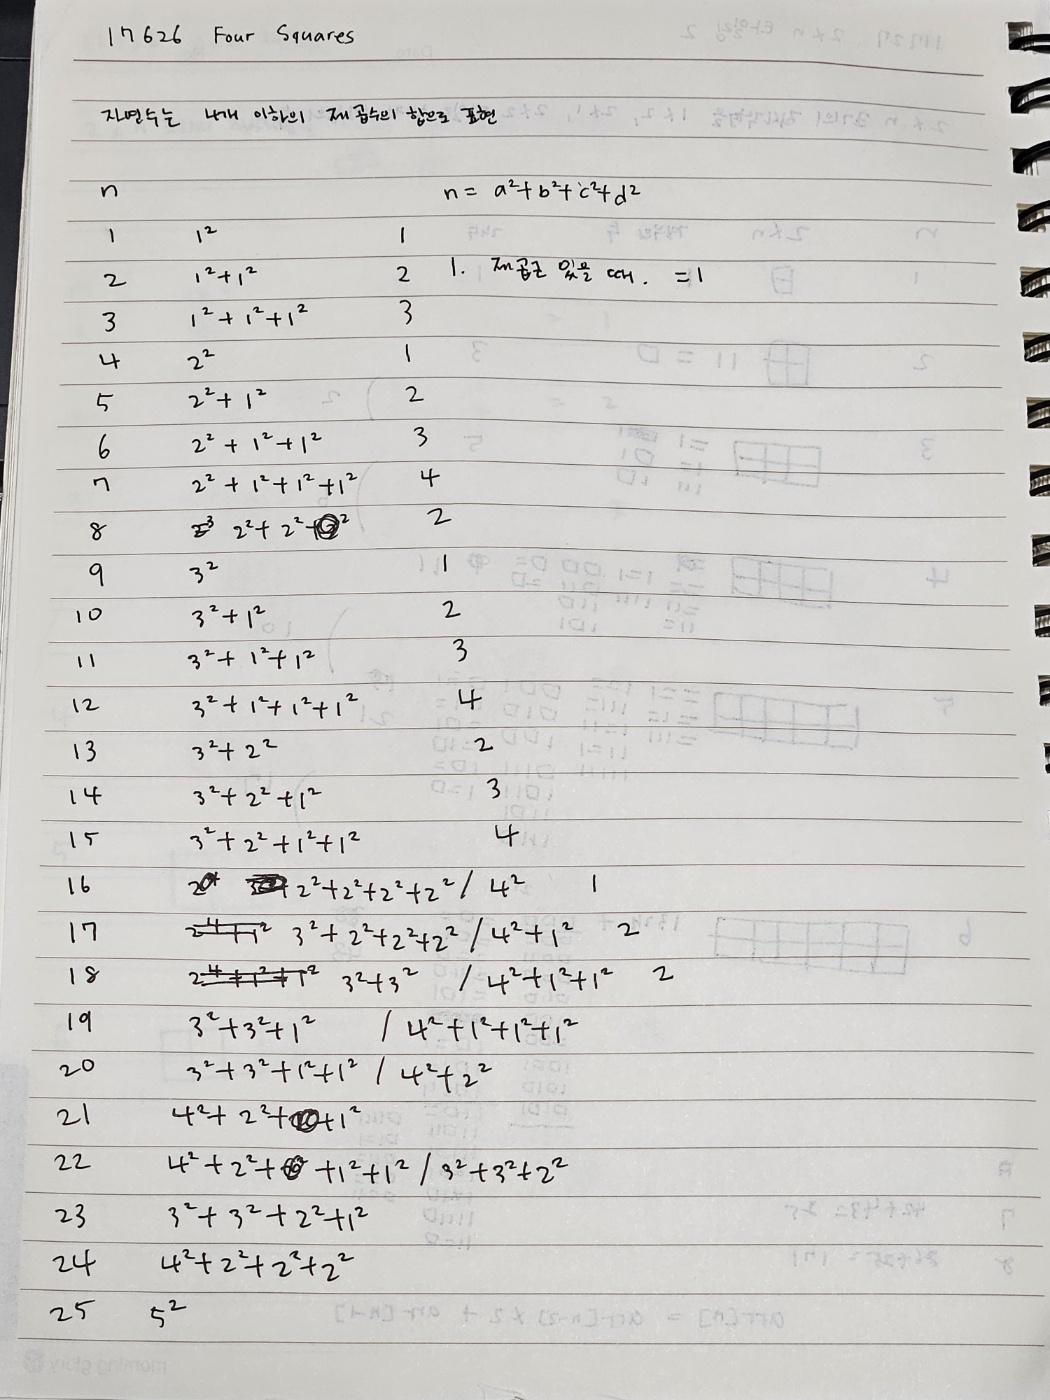 17626 Four Squares
자연수는 네개 이하의 제곱수의 합으로 표현
n n = a²+b²+c²+d²
1 1² 1
2 1²+1² 2 1. 제곱근 있을 때. =1
3 1²+1²+1² 3
4 2² 1
5 2²+1² 2
6 2²+1²+1² 3
7 2²+1²+1²+1² 4
8 2²+2² 2
9 3² 1
10 3²+1² 2
11 3²+1²+1² 3
12 3²+1²+1²+1² 4
13 3²+2² 2
14 3²+2²+1² 3
15 3²+2²+1²+1² 4
16 2²+2²+2²+2² / 4² 1
17 3²+2²+2²+2² / 4²+1² 2
18 3²+3² / 4²+1²+1² 2
19 3²+3²+1² / 4²+1²+1²+1²
20 3²+3²+1²+1² / 4²+2²
21 4²+2²+1²
22 4²+2²+1²+1² / 3²+3²+2²
23 3²+3²+2²+1²
24 4²+2²+2²+2²
25 5²